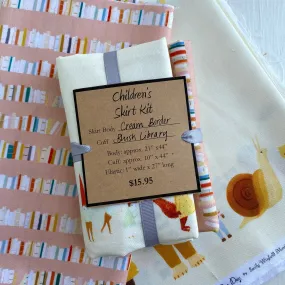 Children's
Skirt Kit
Skirt Body: Cream Border
Cuff: Blush Library
Body: approx. 23" x44"
Cuff: approx. 10" x 44"
Elastic: 1" wide x 27" long
$15.95
Day